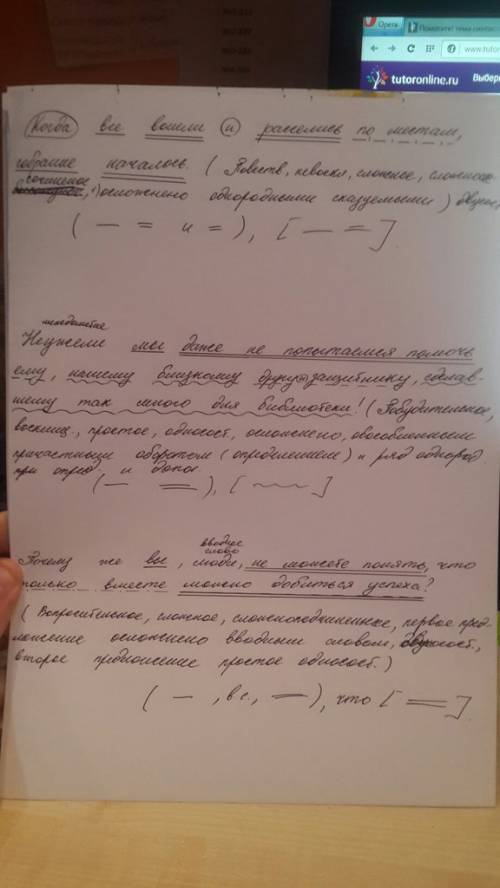 Опera
Помогите! тема синтакс
www.tutor
tutoronline.ru
Выбер
Когда все вошли и расселись по местам,
собрание началось. (Повеств, невоскл, сложное, сложно
сочиненое, осложнено однородными сказуемыми)
( — = и = ), [ — = ].
междометие
Неужели мы даже не попытаемся помочь
ему, нашему близкому другу и защитнику, сделав-
шему так много для библиотеки! (Побудительное,
воскищ., простое, односост, осложнено, обособленным
причастным оборотом (определением) и ряд однород.
при опред. и допол.
( — = ), [ ~~~ ]
вводное
слово
Почему же все, люди, не можете понять, что
только вместе можно добиться успеха?
( Вопросительное, сложное, сложноподчиненное, первое пред-
ложение осложнено вводным словом, двусост.,
второе предложение простое односост.)
( — , в.с., = ), что [ = ].